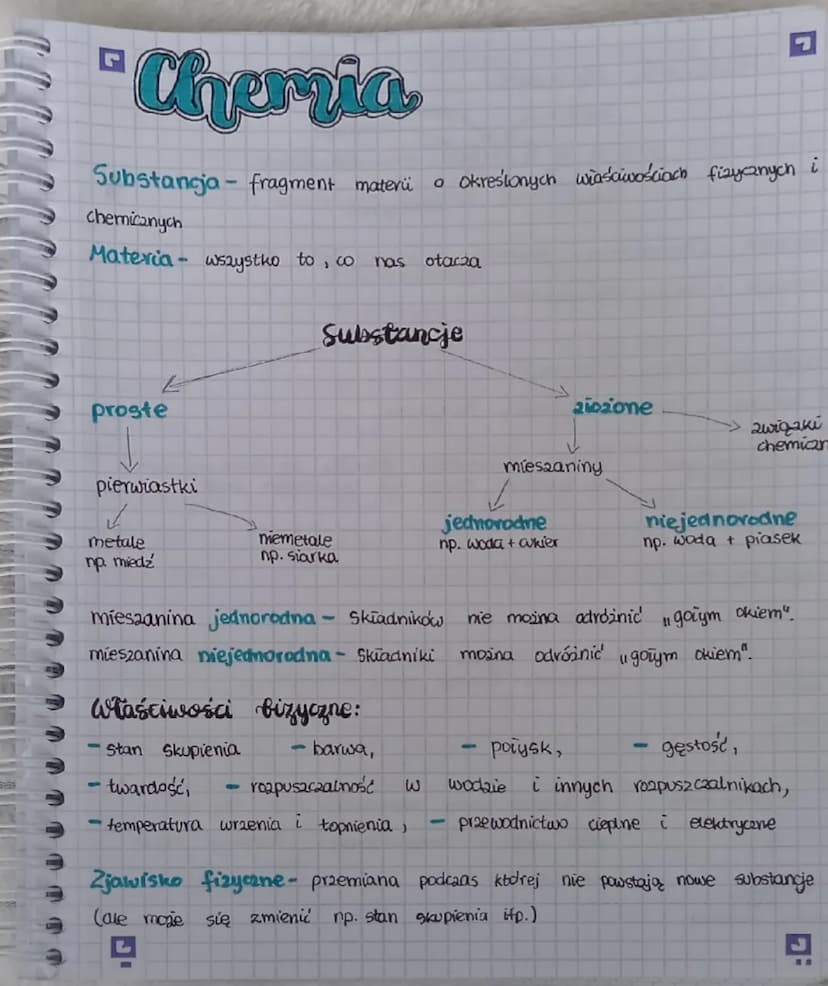 Chemia
Substancja - fragment materii o określonych właściwościach fizycznych i
chemicznych
Materia - wszystko to, co nas otacza
Substancje
proste
złożone
związki
chemiczn
pierwiastki
mieszaniny
metale
np. miedź
niemetale
np. siarka
jednorodne
np. woda + cukier
niejednorodne
np. woda + piasek
mieszanina jednorodna - składników nie można odróżnić „gołym okiem".
mieszanina niejednorodna - składniki można odróżnić „gołym okiem".
Właściwości fizyczne:
- stan skupienia - barwa, - połysk, - gęstość,
- twardość, - rozpuszczalność w wodzie i innych rozpuszczalnikach,
- temperatura wrzenia i topnienia, - przewodnictwo cieplne i elektryczne
Zjawisko fizyczne - przemiana podczas której nie powstają nowe substancje
(ale może się zmienić np. stan skupienia itp.)